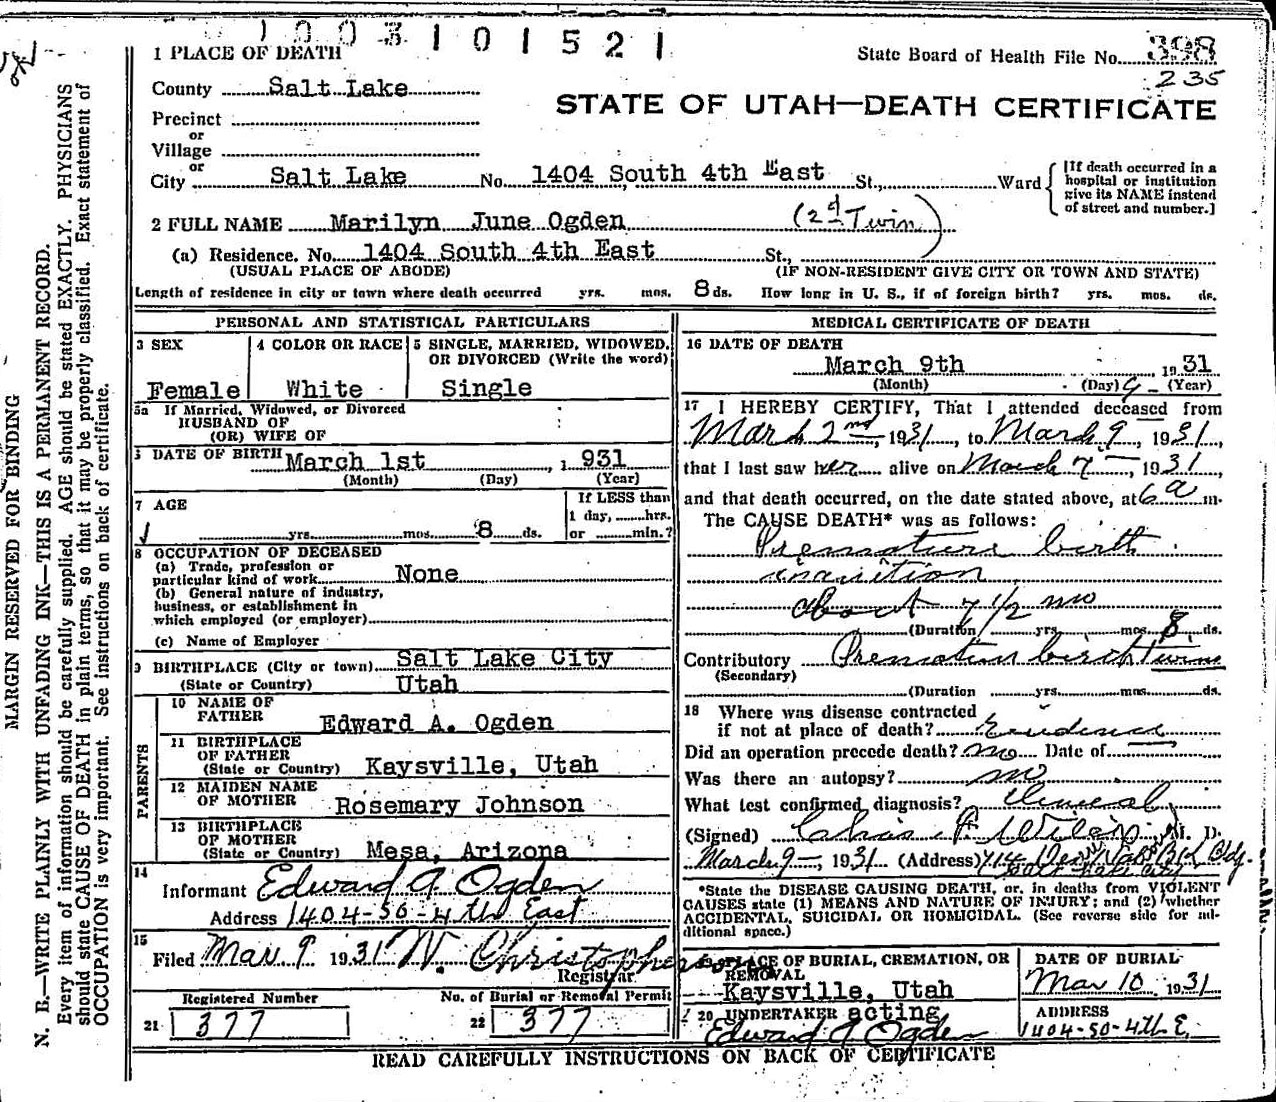 1003101521
1 PLACE OF DEATH
State Board of Health File No. 398
235
County Salt Lake
STATE OF UTAH—DEATH CERTIFICATE
Precinct
or
Village
or
City Salt Lake No. 1404 South 4th East St., Ward
[If death occurred in a hospital or institution give its NAME instead of street and number.]
2 FULL NAME Marilyn June Ogden (2d Twin)
(a) Residence. No. 1404 South 4th East St.,
(USUAL PLACE OF ABODE) (IF NON-RESIDENT GIVE CITY OR TOWN AND STATE)
Length of residence in city or town where death occurred yrs. mos. 8 ds. How long in U. S., if of foreign birth? yrs. mos. ds.
PERSONAL AND STATISTICAL PARTICULARS
3 SEX 4 COLOR OR RACE 5 SINGLE, MARRIED, WIDOWED, OR DIVORCED (Write the word)
Female White Single
5a If Married, Widowed, or Divorced
HUSBAND OF
(OR) WIFE OF
DATE OF BIRTH March 1st, 1931
(Month) (Day) (Year)
7 AGE
If LESS than
1 day, hrs.
yrs. mos. 8 ds. or min.?
8 OCCUPATION OF DECEASED
(a) Trade, profession or
particular kind of work None
(b) General nature of industry,
business, or establishment in
which employed (or employer)
(c) Name of Employer
9 BIRTHPLACE (City or town) Salt Lake City
(State or Country) Utah
PARENTS
10 NAME OF
FATHER Edward A. Ogden
11 BIRTHPLACE
OF FATHER
(State or Country) Kaysville, Utah
12 MAIDEN NAME
OF MOTHER Rosemary Johnson
13 BIRTHPLACE
OF MOTHER
(State or Country) Mesa, Arizona
14
Informant Edward A Ogden
Address 1404-So-4th East
15
Filed Mar 9 1931 W. Christopherson
Registrar
Registered Number No. of Burial or Removal Permit
21 377 22 377
MEDICAL CERTIFICATE OF DEATH
16 DATE OF DEATH
March 9th 1931
(Month) (Day) 9 (Year)
17 I HEREBY CERTIFY, That I attended deceased from
March 2nd, 1931, to March 9, 1931,
that I last saw her alive on March 7, 1931,
and that death occurred, on the date stated above, at 6 a m.
The CAUSE DEATH* was as follows:
Premature birth
inanition
about 7 1/2 mo
(Duration yrs. mos. 8 ds.
Contributory Premature birth Twins
(Secondary)
(Duration yrs. mos. ds.
18 Where was disease contracted
if not at place of death?
Did an operation precede death? no Date of
Was there an autopsy? no
What test confirmed diagnosis? Clinical
(Signed) M. D.
March 9, 1931 (Address) 714 Bldg.
Salt Lake City
*State the DISEASE CAUSING DEATH, or, in deaths from VIOLENT
CAUSES state (1) MEANS AND NATURE OF INJURY; and (2) whether
ACCIDENTAL, SUICIDAL OR HOMICIDAL. (See reverse side for additional space.)
PLACE OF BURIAL, CREMATION, OR
REMOVAL
Kaysville, Utah
DATE OF BURIAL
Mar 10 1931
20 UNDERTAKER acting
Edward A Ogden
ADDRESS
1404-SO-4th E.
READ CAREFULLY INSTRUCTIONS ON BACK OF CERTIFICATE
MARGIN RESERVED FOR BINDING
N. B.—WRITE PLAINLY WITH UNFADING INK—THIS IS A PERMANENT RECORD.
Every item of information should be carefully supplied. AGE should be stated EXACTLY. PHYSICIANS
should state CAUSE OF DEATH in plain terms, so that it may be properly classified. Exact statement of
OCCUPATION is very important. See instructions on back of certificate.